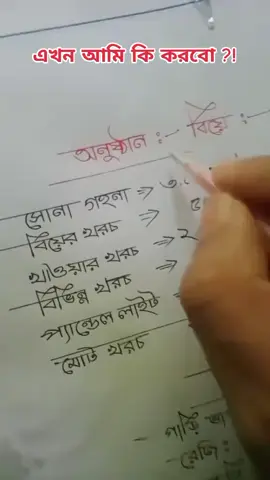 এখন আমি কি করবো ?!
অনুষ্ঠান :- বিয়ে :
সোনা গহনা ⇒
বিয়ের খরচ ⇒
খাওয়ার খরচ ⇒ ২
বিভিন্ন খরচ ⇒
প্যান্ডেল লাইট
মোট খরচ
গাড়ি
রেজি :